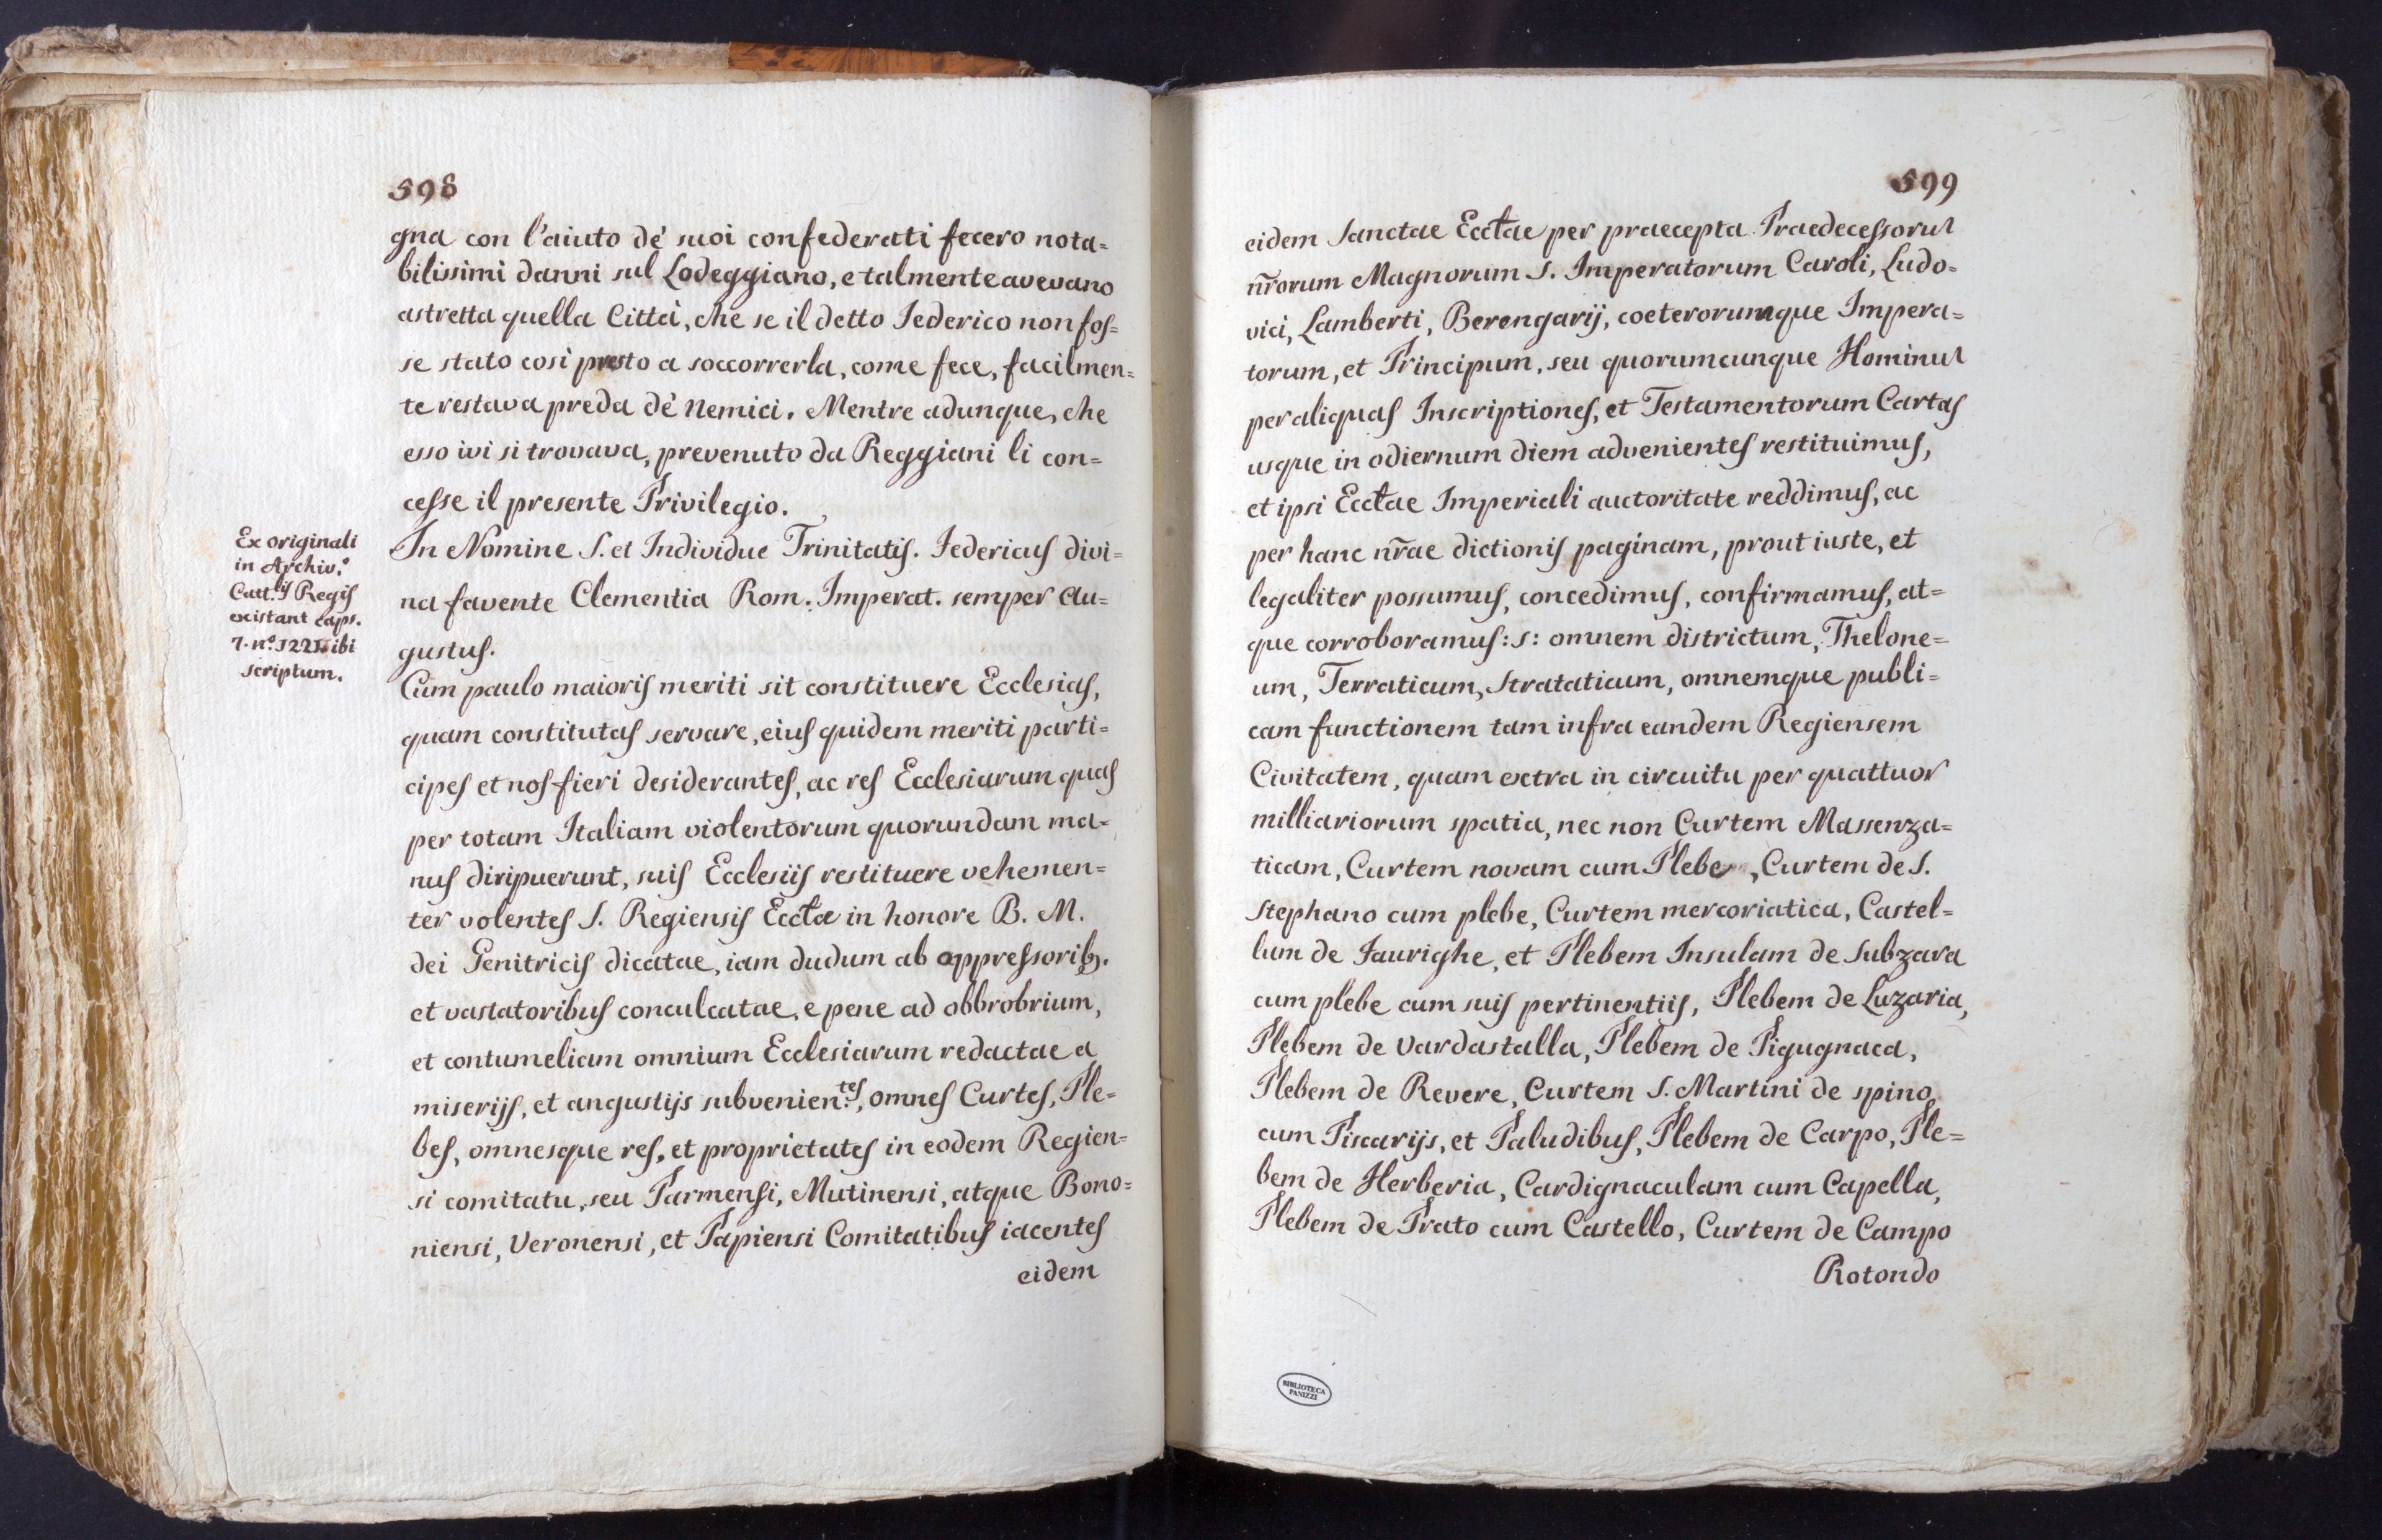 598
gna con l'aiuto de' suoi confederati fecero nota=
bilissimi danni sul Lodeggiano, e talmente avevano
astretta quella Città, che se il detto Federico non fos=
se stato così presto a soccorrerla, come fece, facilmen=
te restava preda de' Nemici. Mentre adunque, che
esso ivi si trovava, prevenuto da Reggiani li con=
cesse il presente Privilegio.
Ex originali
in Archiv.º
Catt.lis Regis
existant Caps.
7. nº. 1221 ibi
scriptum.
In Nomine S. et Individue Trinitatis. Federicus divi=
na favente Clementia Rom. Imperat. semper Au=
gustus.
Cum paulo maioris meriti sit constituere Ecclesias,
quam constitutas servare, eius quidem meriti parti=
cipes et nos fieri desiderantes, ac res Ecclesiarum quas
per totam Italiam violentorum quorundam ma=
nus diripuerunt, suis Ecclesiis restituere vehemen=
ter volentes S. Regiensis Ecctæ in honore B. M.
dei Genitricis dicatae, iam dudum ab oppressorib9.
et vastatoribus conculcatae, e pene ad obbrobrium,
et contumeliam omnium Ecclesiarum redactae a
miserijs, et angustijs subvenien.tes, omnes Curtes, Ple=
bes, omnesque res, et proprietates in eodem Regien=
si comitatu, seu Parmensi, Mutinensi, atque Bono=
niensi, Veronensi, et Papiensi Comitatibus iacentes
eidem
599
eidem Sanctae Ecctae per praecepta Praedecessorum
nr̄orum Magnorum S. Imperatorum Caroli, Ludo=
vici, Lamberti, Berengarij, coeterorumque Impera=
torum, et Principum, seu quorumcunque Hominum
per aliquas Inscriptiones, et Testamentorum Cartas
usque in odiernum diem advenientes restituimus,
et ipsi Ecctae Imperiali auctoritate reddimus, ac
per hanc nr̄ae dictionis paginam, prout iuste, et
legaliter possumus, concedimus, confirmamus, at=
que corroboramus: s: omnem districtum, Thelone=
um, Terraticum, Strataticum, omnemque publi=
cam functionem tam infra eandem Regiensem
Civitatem, quam extra in circuitu per quattuor
milliariorum spatia, nec non Curtem Massenza=
ticam, Curtem novam cum Plebe, Curtem de S.
Stephano cum plebe, Curtem mercoriatica, Castel=
lum de Faurighe, et Plebem Insulam de Subzara
cum plebe cum suis pertinentiis, Plebem de Luzaria,
Plebem de Vardastalla, Plebem de Pigugnaca,
Plebem de Revere, Curtem S. Martini de spino
cum Piscarijs, et Paludibus, Plebem de Carpo, Ple=
bem de Herberia, Cardignaculam cum Capella,
Plebem de Prato cum Castello, Curtem de Campo
Rotondo
BIBLIOTECA
PANIZZI